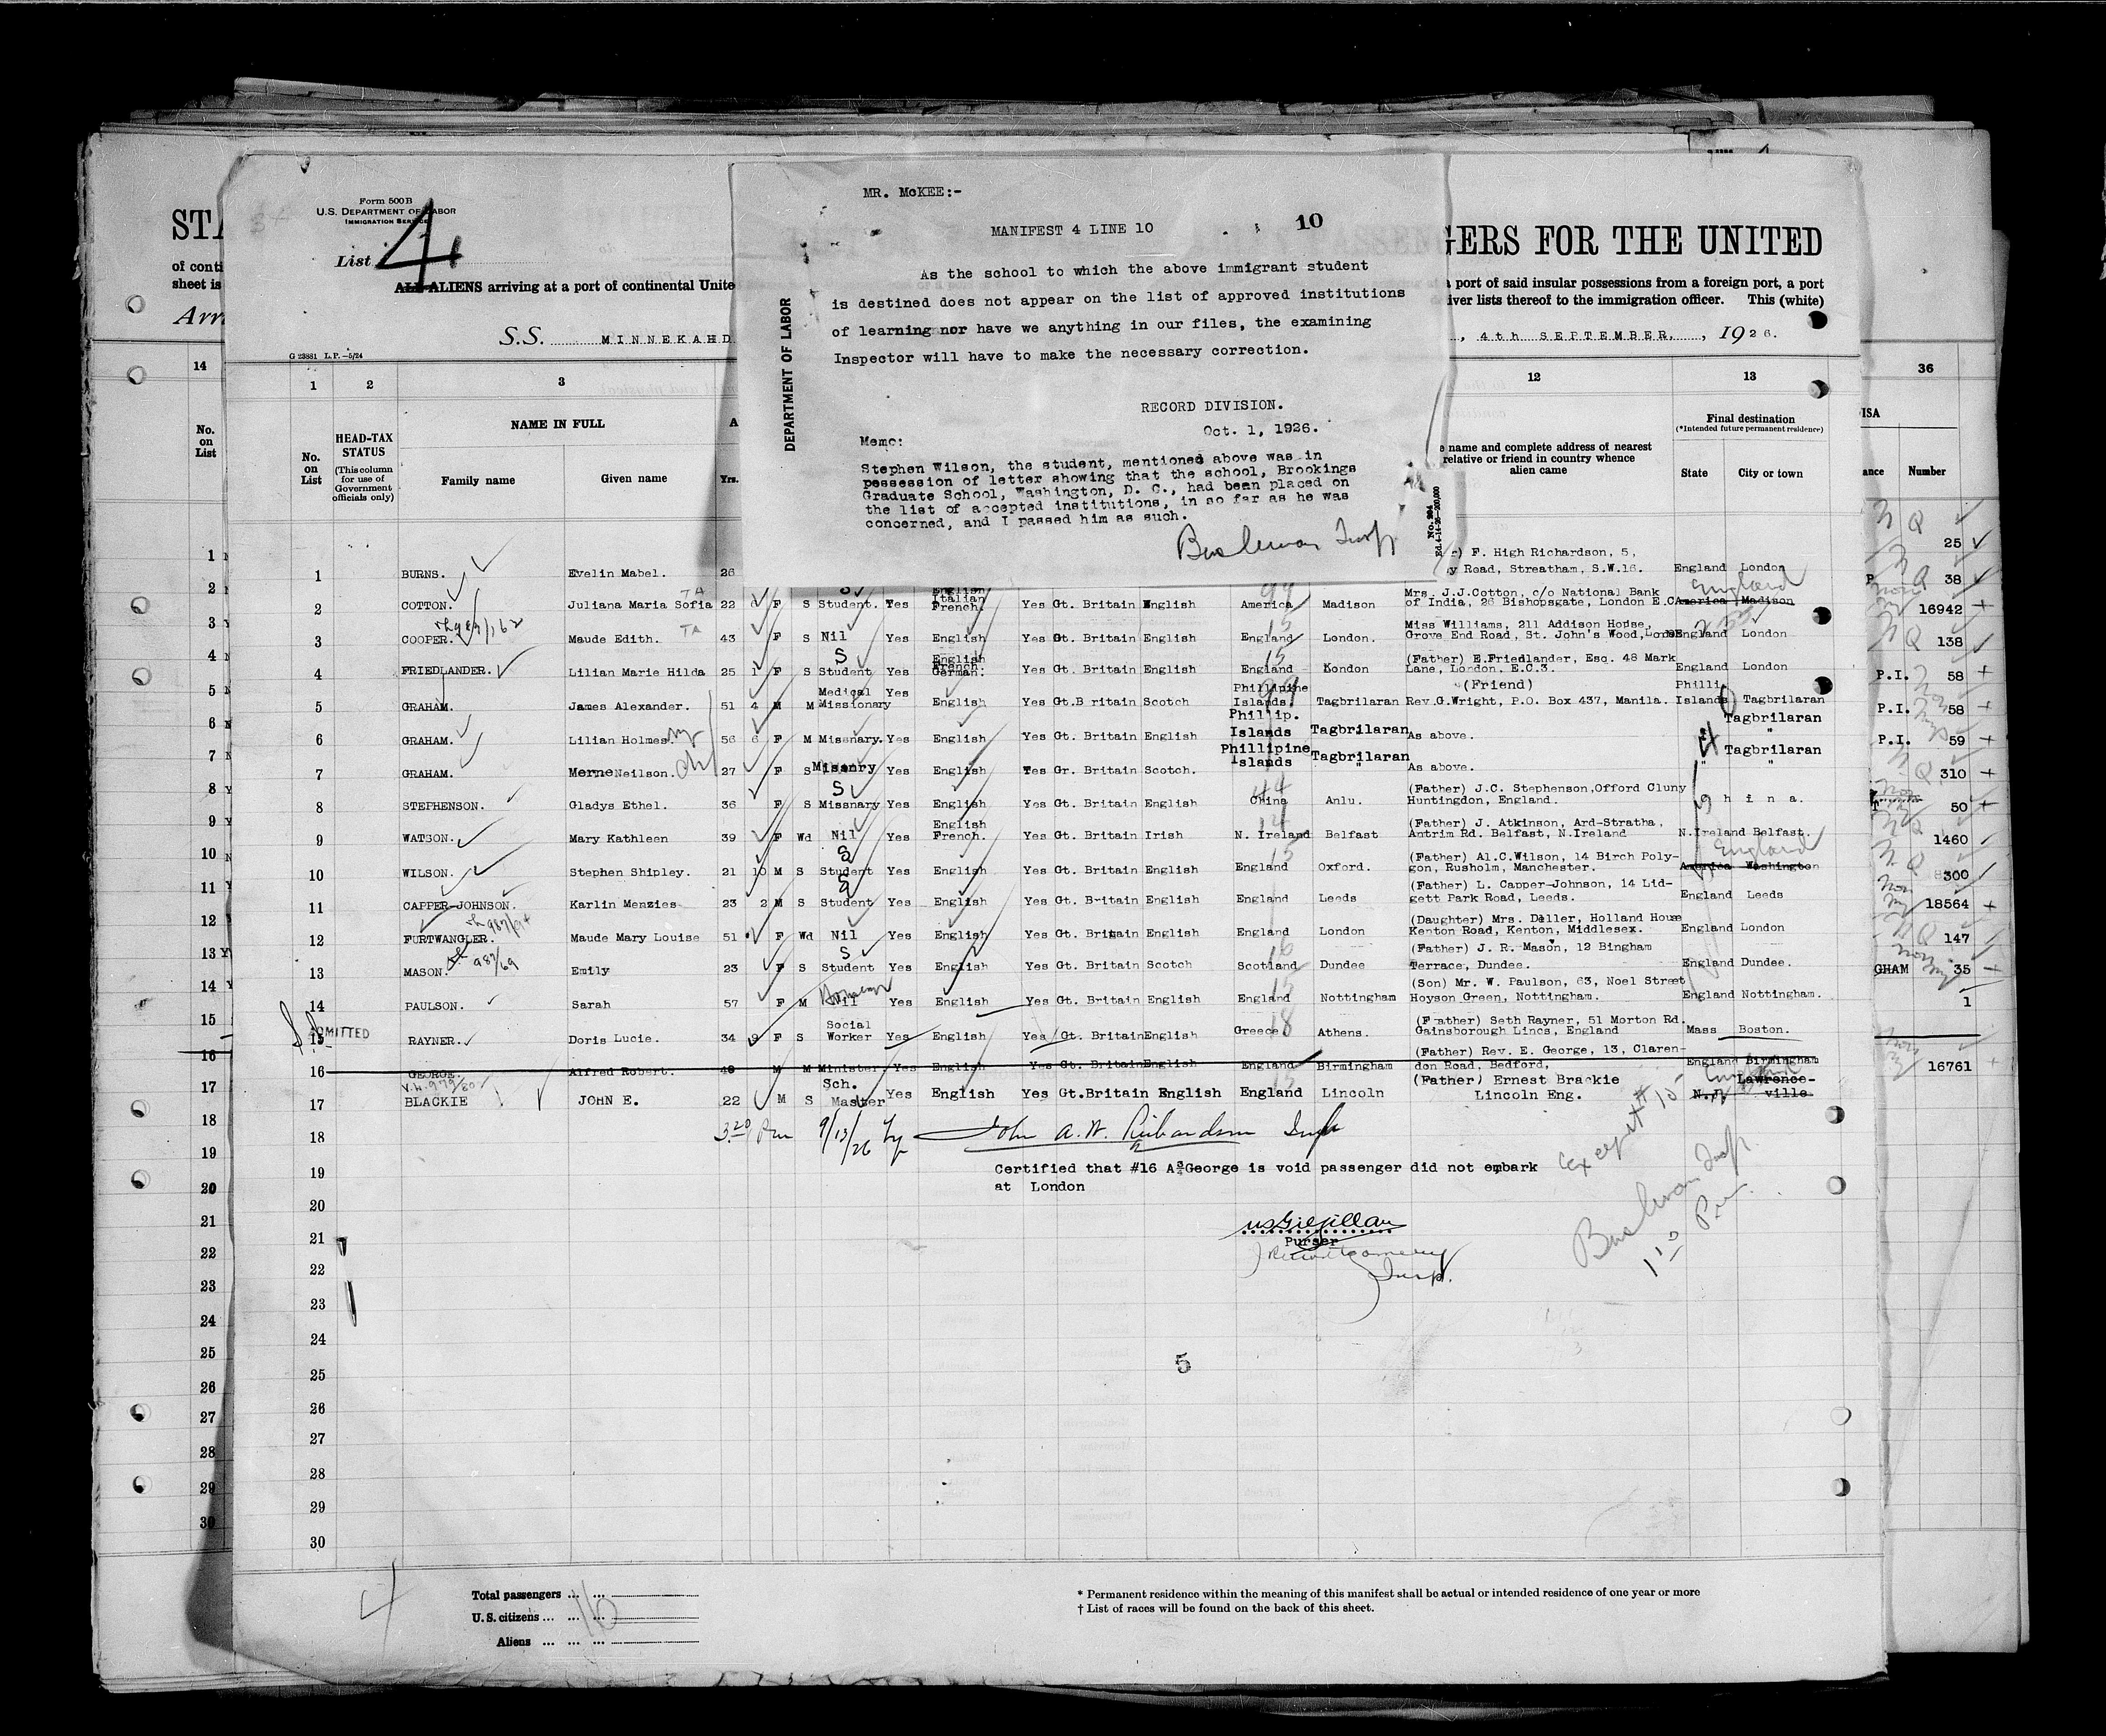 Form 500 B
U.S. DEPARTMENT OF LABOR
IMMIGRATION SERVICE
List 4
GERS FOR THE UNITED
ALL ALIENS arriving at a port of continental Unite
port of said insular possessions from a foreign port, a port
iver lists thereof to the immigration officer. This (white)
S.S. MINNEKAHD
, 4th SEPTEMBER, , 1926.
G 23881 L.P.—5/24
STA
of conti
sheet is
Arri
MR. McKEE:-
MANIFEST 4 LINE 10
10
As the school to which the above immigrant student
is destined does not appear on the list of approved institutions
of learning nor have we anything in our files, the examining
Inspector will have to make the necessary correction.
RECORD DIVISION.
Oct. 1, 1926.
Memo:
Stephen Wilson, the student, mentioned above was in
possession of letter showing that the school, Brookings
Graduate School, Washington, D. C., had been placed on
the list of accepted institutions, in so far as he was
concerned, and I passed him as such.
DEPARTMENT OF LABOR
1 2 3 12 13
14 36
No. on List
HEAD-TAX STATUS
(This column for use of Government officials only)
NAME IN FULL
Family name Given name
Yrs.
name and complete address of nearest
relative or friend in country whence
alien came
Final destination
(*Intended future permanent residence)
State City or town
Number
1 BURNS. Evelin Mabel. 26 F. High Richardson, 5, y Road, Streatham, S.W.16. England London 25
2 COTTON. Juliana Maria Sofia 22 F S Student. Yes English Italian French. Yes Gt. Britain English America Madison Mrs. J.J.Cotton, c/o National Bank of India, 26 Bishopsgate, London E.C. America Madison England 38
3 COOPER. Maude Edith. 43 F S Nil Yes English Yes Gt. Britain English England London. Miss Williams, 211 Addison House, Grove End Road, St. John's Wood, England London 16942
4 FRIEDLANDER. Lilian Marie Hilda 25 1 F S Student Yes English French. German. Yes Gt. Britain English England London (Father) E.Friedlander, Esq. 48 Mark Lane, London. E.C.3. England London 138
5 GRAHAM. James Alexander. 51 4 M M Medical Missionary Yes English Yes Gt.Britain Scotch Phillipine Islands. Tagbrilaran (Friend) Rev.G.Wright, P.O. Box 437, Manila. Philli. Islands Tagbrilaran P.I. 58
6 GRAHAM. Lilian Holmes. 56 6 F M Missnary. Yes English Yes Gt. Britain English Phillip. Islands Tagbrilaran As above. Tagbrilaran " P.I. 58
7 GRAHAM. Merne Neilson. 27 F S Missnry Yes English Yes Gr. Britain Scotch. Phillipine Islands Tagbrilaran " As above. " Tagbrilaran " P.I. 59
8 STEPHENSON. Gladys Ethel. 36 F S Missnary Yes English Yes Gt. Britain English China Anlu. (Father) J.C. Stephenson,Offord Cluny Huntingdon, England. China. 310
9 WATSON. Mary Kathleen 39 F Wd Nil Yes English French. Yes Gt. Britain Irish N. Ireland Belfast (Father) J. Atkinson, Ard-Stratha, Antrim Rd. Belfast, N.Ireland N.Ireland Belfast. 50
10 WILSON. Stephen Shipley. 21 10 M S Student Yes English Yes Gt. Britain English England Oxford. (Father) Al.C.Wilson, 14 Birch Polygon, Rusholm, Manchester. America Washington England 1460
11 CAPPER-JOHNSON. Karlin Menzies 23 2 M S Student Yes English Yes Gt. Britain English England Leeds (Father) L. Capper-Johnson, 14 Lidgett Park Road, Leeds. England Leeds 300
12 FURTWANGLER. Maude Mary Louise 51 F Wd Nil Yes English Yes Gt. Britain English England London (Daughter) Mrs. Diller, Holland House Kenton Road, Kenton, Middlesex. England London 18564
13 MASON. Emily 23 F S Student Yes English Yes Gt. Britain Scotch Scotland Dundee (Father) J. R. Mason, 12 Bingham Terrace, Dundee. England Dundee. 147
14 PAULSON. Sarah 57 F M Nil Yes English Yes Gt. Britain English England Nottingham (Son) Mr. W. Paulson, 63, Noel Street Hoyson Green, Nottingham. England Nottingham. GHAM 35
ADMITTED
15 RAYNER. Doris Lucie. 34 9 F S Social Worker Yes English Yes Gt. Britain English Greece Athens. (Father) Seth Rayner, 51 Morton Rd. Gainsborough Lincs, England Mass Boston. 1
16 GEORGE. Alfred Robert. 40 M M Minister Yes English Yes Gt. Britain English England Birmingham (Father) Rev. E. George, 13, Clarendon Road, Bedford, England Birmingham
17 BLACKIE JOHN E. 22 M S Sch. Master Yes English Yes Gt.Britain English England Lincoln (Father) Ernest Brackie Lincoln Eng. N.J. Lawrenceville 16761
18 3.20 Pm 9/13/26 John A. W. Richardson Insp
19 Certified that #16 A George is void passenger did not embark
20 at London
except # 15
21
Purser
22
Insp.
23
24
25
5
26
27
28
29
30
4
Total passengers ... ... 16
U.S. citizens ... ... ...
Aliens ... ... ...
* Permanent residence within the meaning of this manifest shall be actual or intended residence of one year or more
† List of races will be found on the back of this sheet.